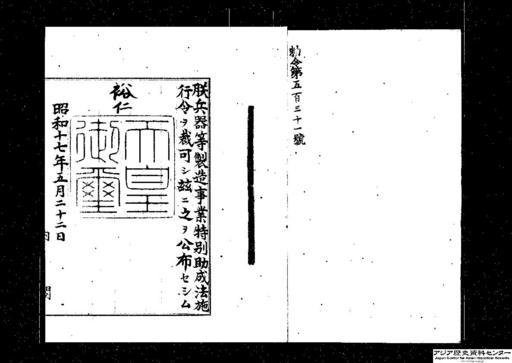 勅令第五百三十一號
朕兵器等製造事業特別助成法施
行令ヲ裁可シ玆ニ之ヲ公布セシム
裕仁
天皇
御璽
昭和十七年五月二十二日
内閣
アジア歴史資料センター
Japan Center for Asian Historical Records